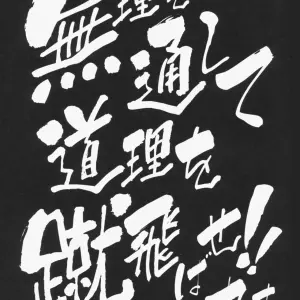 無理を
通して
道理を
蹴飛ばせ!!